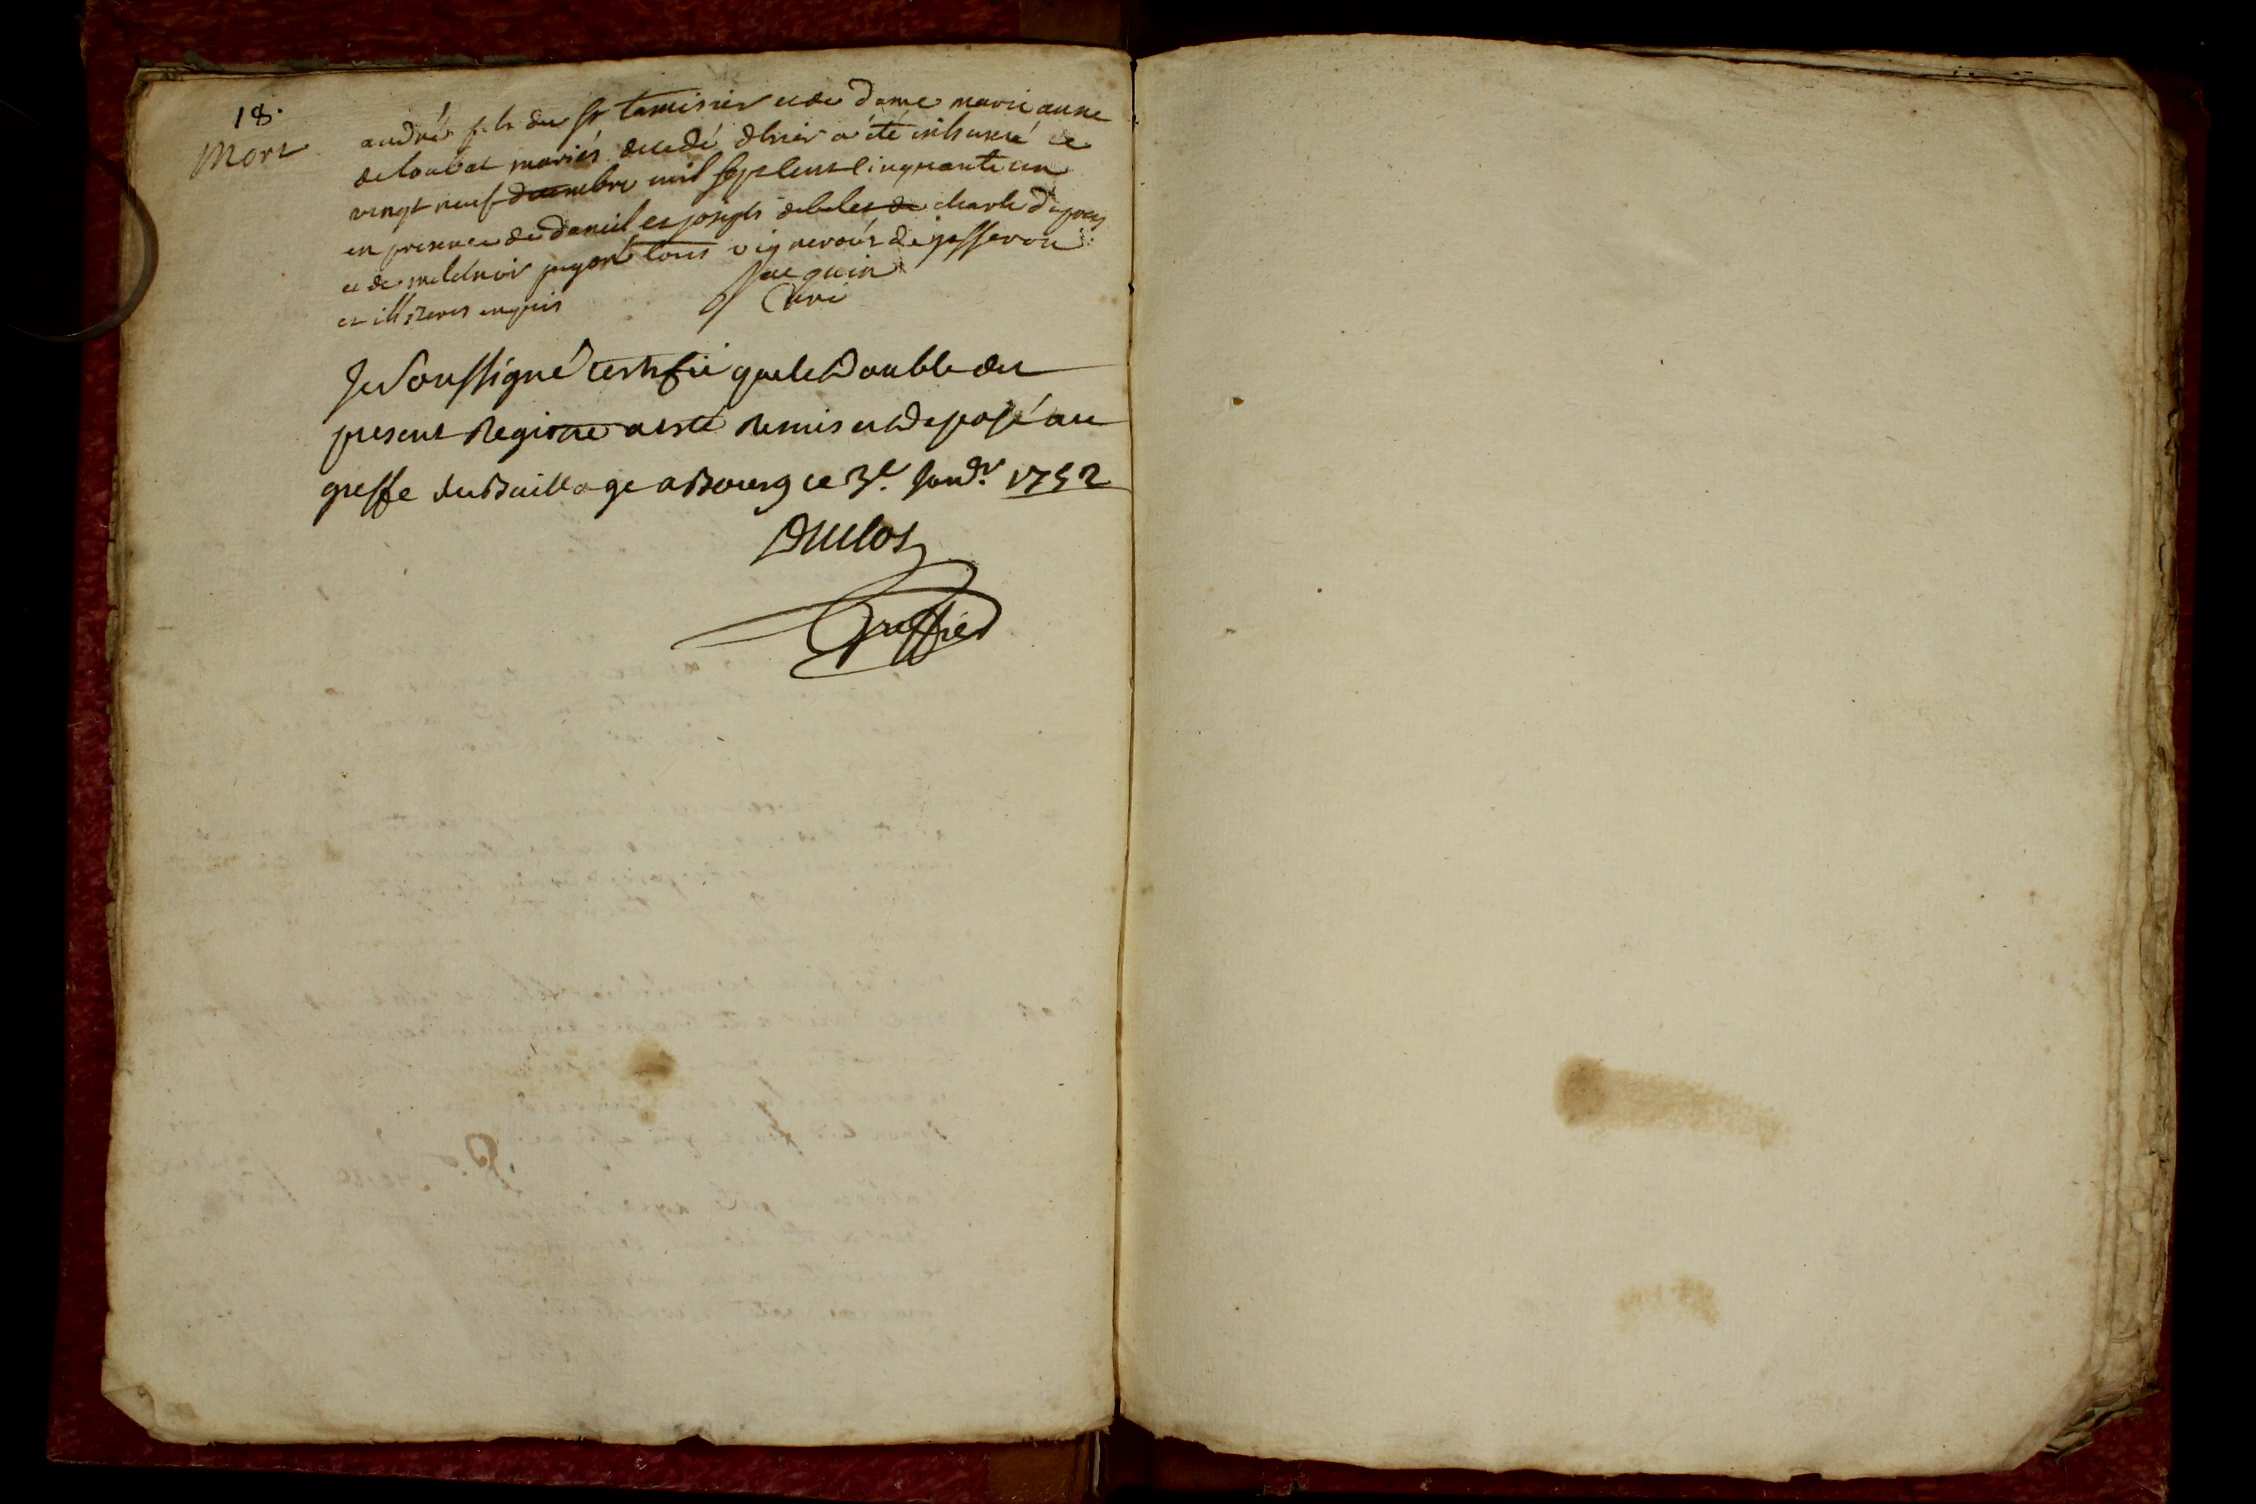 18.
Mort
andré fils du sr tamisier et de dame marie anne
de loubat mariés decedé d'hier a été inhumé ce
vingt neuf decembre mil sept cent cinquante un
en presence de daniel et joseph charle
et de tous vignerons de jasseron
et illiteres enquis
Jacquin
Curé
Je Soussigné certifie que le Double du
present Registre a esté remis et deposé au
greffe du Baillage a Bourg ce 3e. Janvr. 1752
Duclos
Greffier